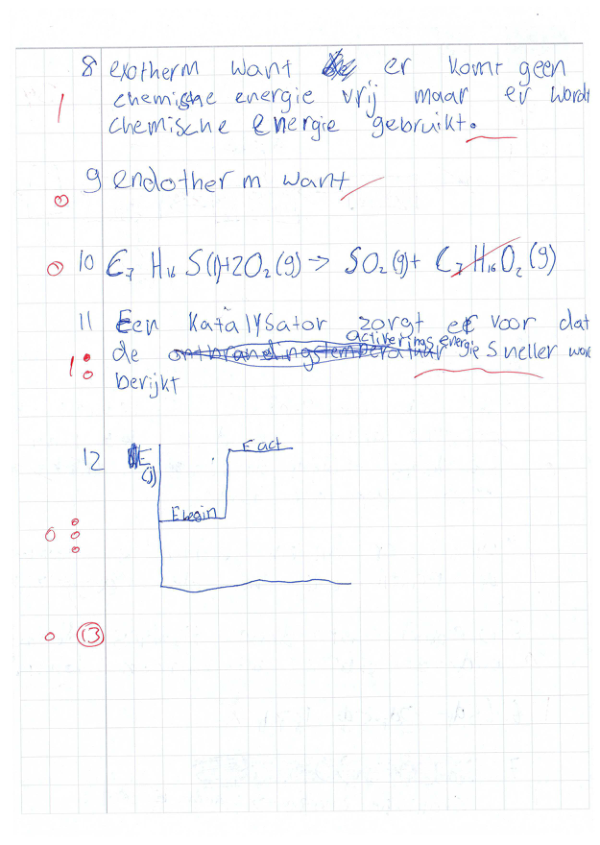 8 exotherm want er komt geen
1 chemische energie vrij maar er wordt
chemische energie gebruikt.
9 endotherm want
0
0 10 C7 H16 S(l)+2O2(g) → SO2(g)+ C7H16O2(g)
11 Een Katalysator zorgt er voor dat
activerings energie
1 de ontbrandingstemperatuur sneller
berijkt
12 E
(J)
E act
Ebegin
0
0 13